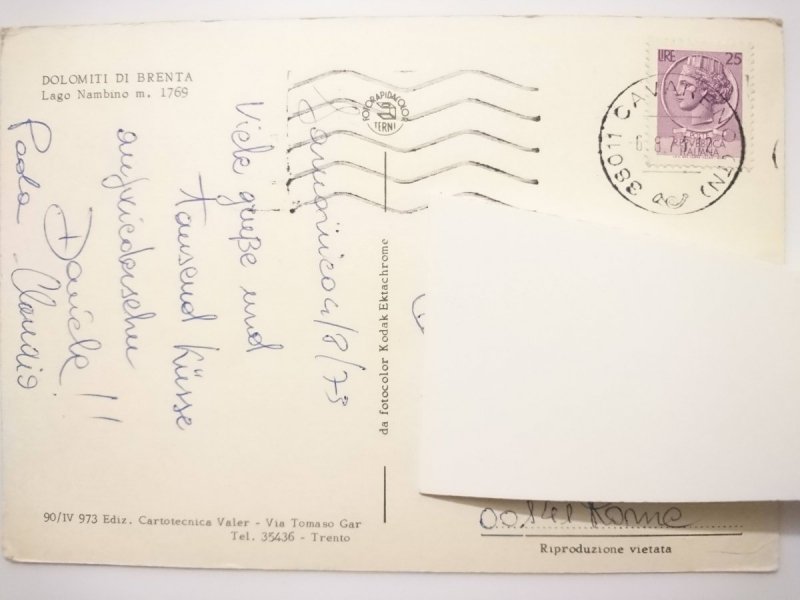 DOLOMITI DI BRENTA
Lago Nambino m. 1769
4/8/73
Viele große und
tausend Küsse
aufwiedersehn
Daniele!!
Paola Claudio
90/IV 973 Ediz. Cartotecnica Valer - Via Tomaso Gar
Tel. 35436 - Trento
da fotocolor Kodak Ektachrome
FOTORAPIDACOLOR
TERNI
LIRE 25
REPUBBLICA
ITALIANA
38011 (TN)
00141 Rome
Riproduzione vietata